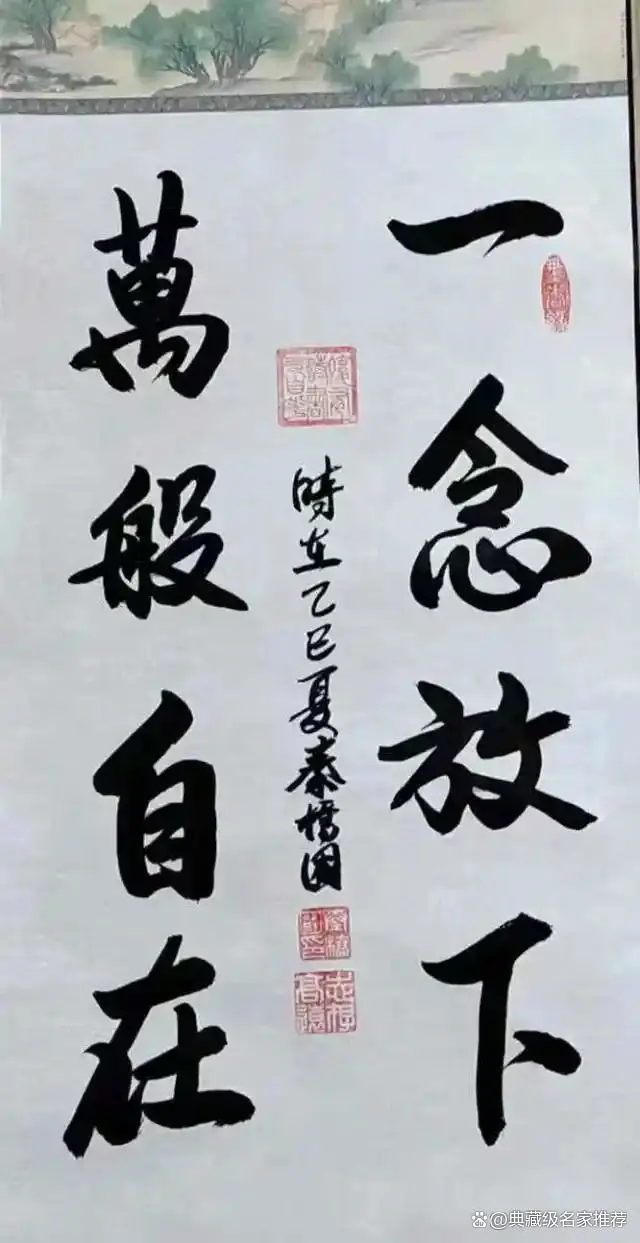 一念放下
萬般自在
時在乙巳夏秦橋国
@典藏级名家推荐